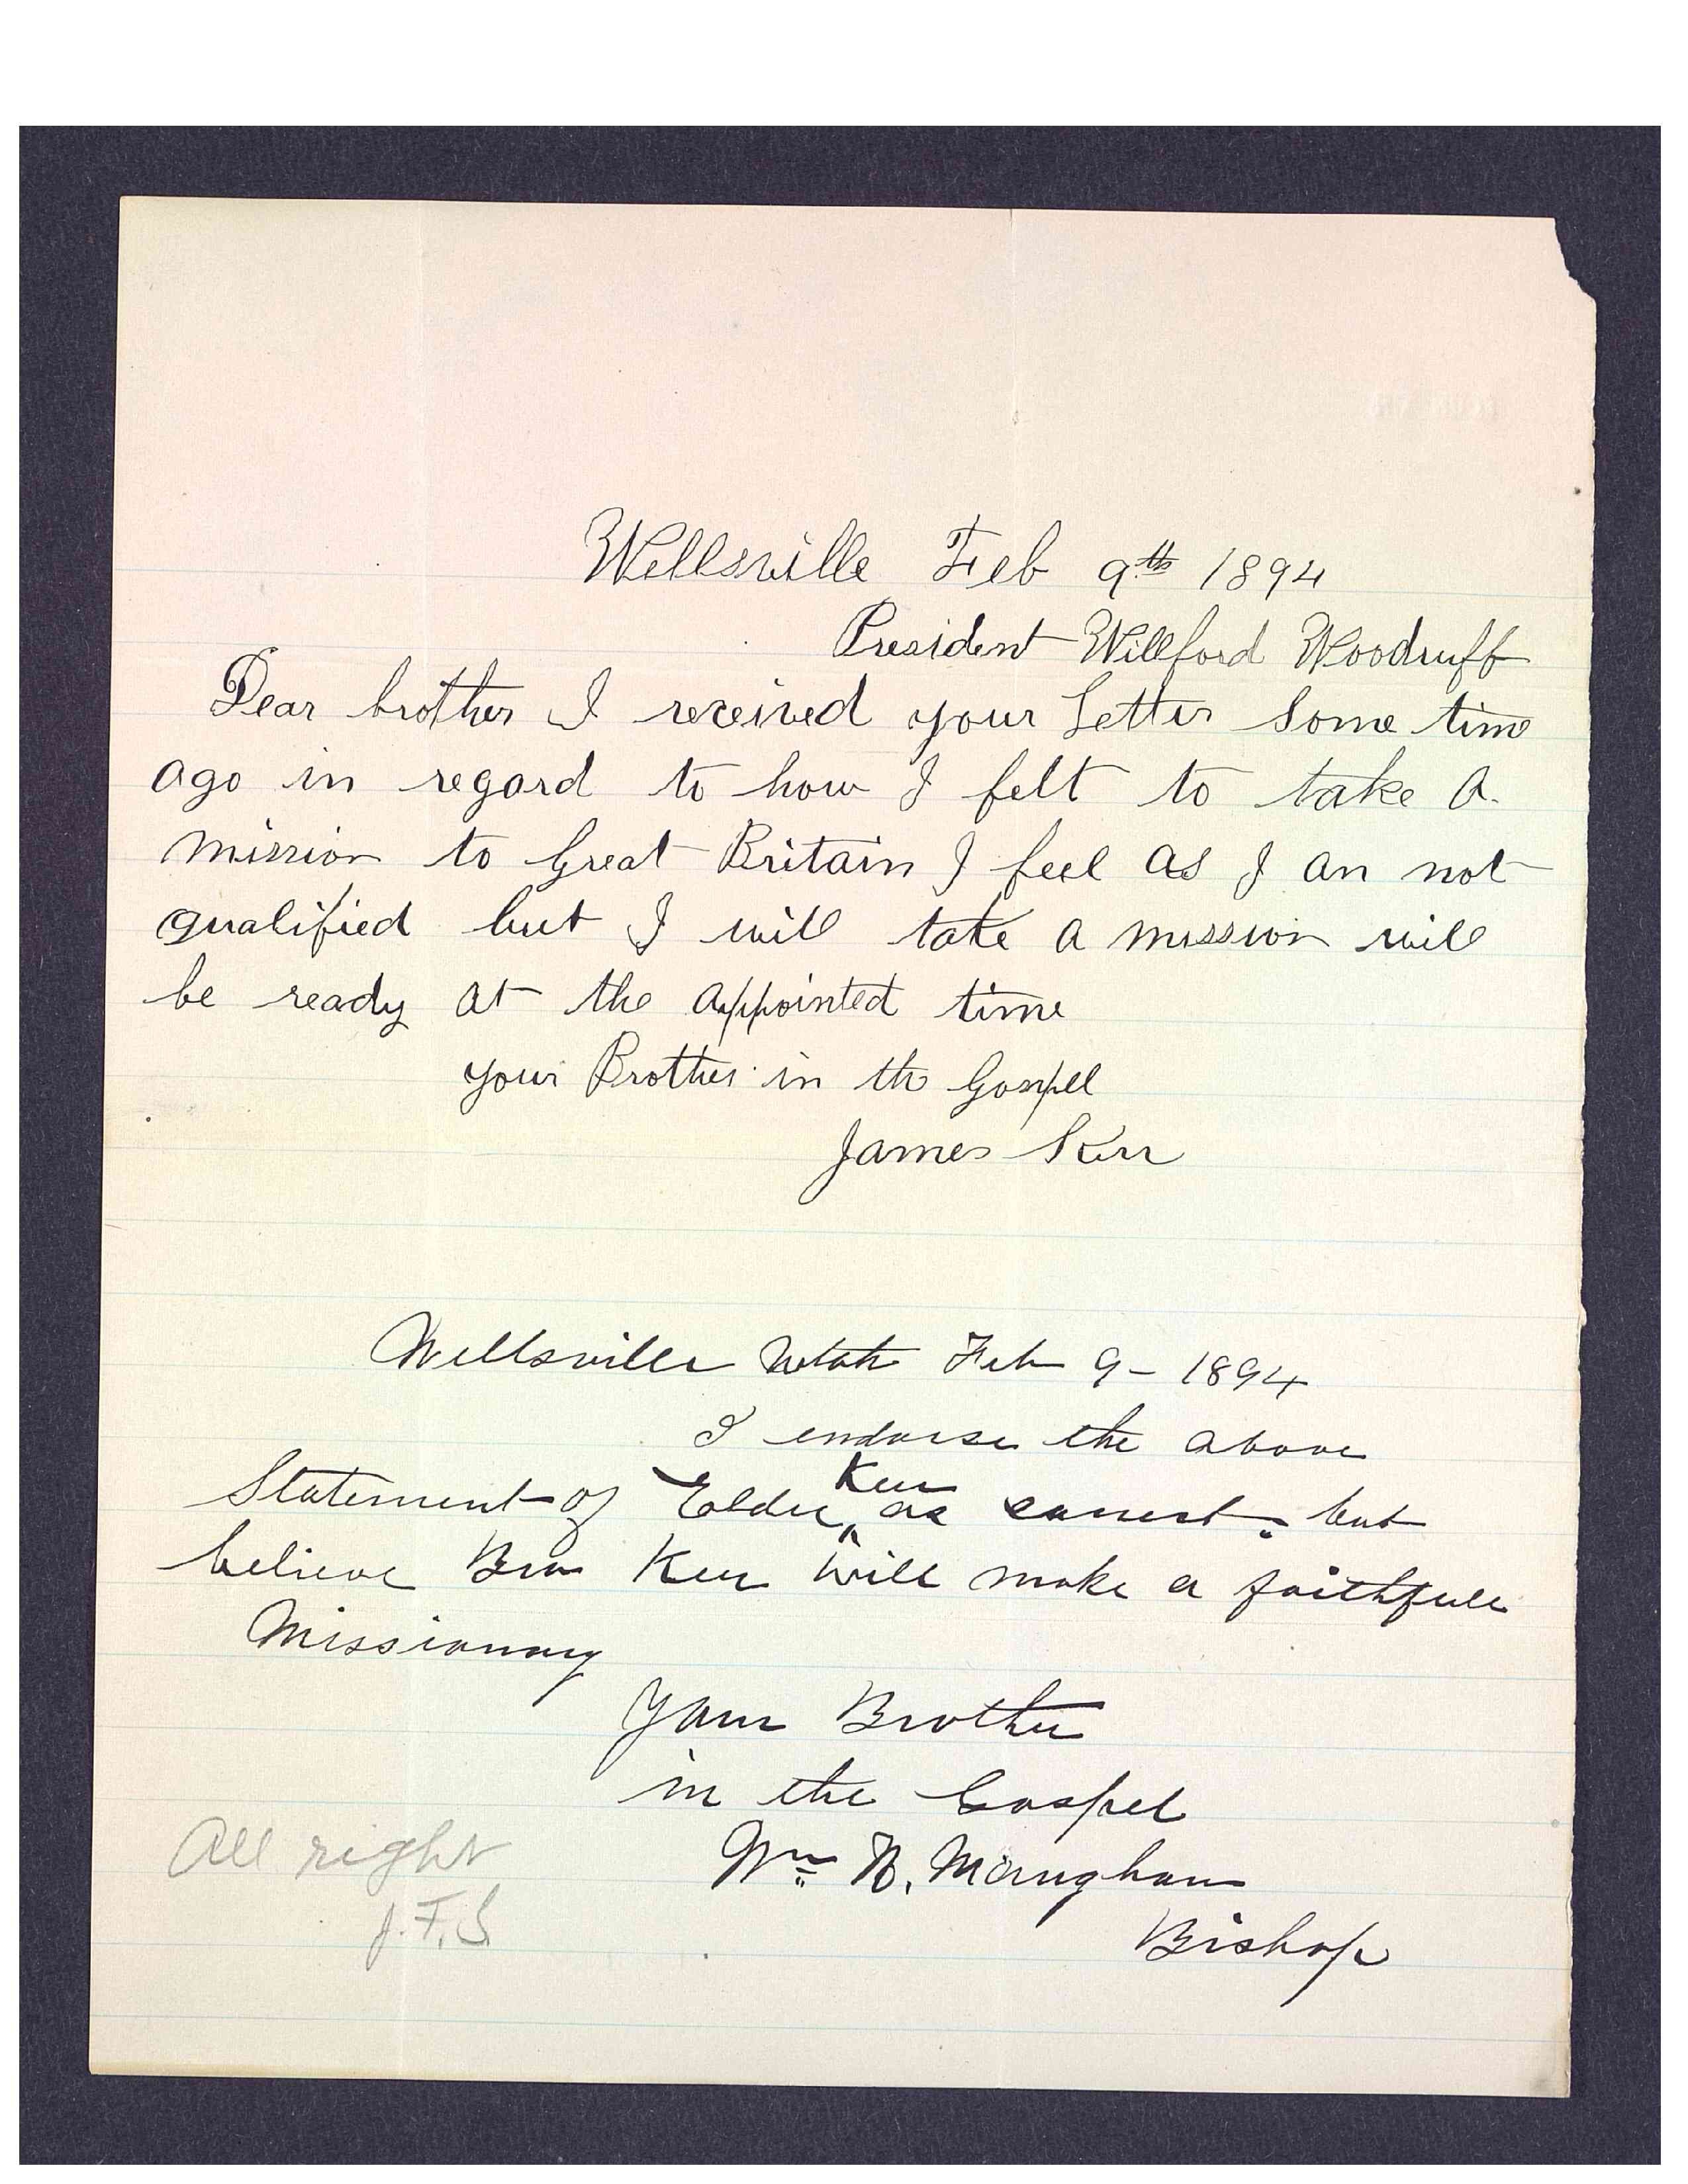 Wellsville Feb 9th 1894
President Willford Woodruff
Dear brother I received your Letter some time
ago in regard to how I felt to take a
mission to Great Britain I feel as I an not
qualified but I will take a mission will
be ready at the appointed time
your Brother in the Gospell
James Kerr
Wellsville Utah Feb 9 - 1894
I endorse the above
Statement of Elder Kerr as correct. but
believe Bro Kerr will make a faithfull
Missionary
Your Brother
in the Gospel
Wm H. Maughan
Bishop
All right
J.F.S.